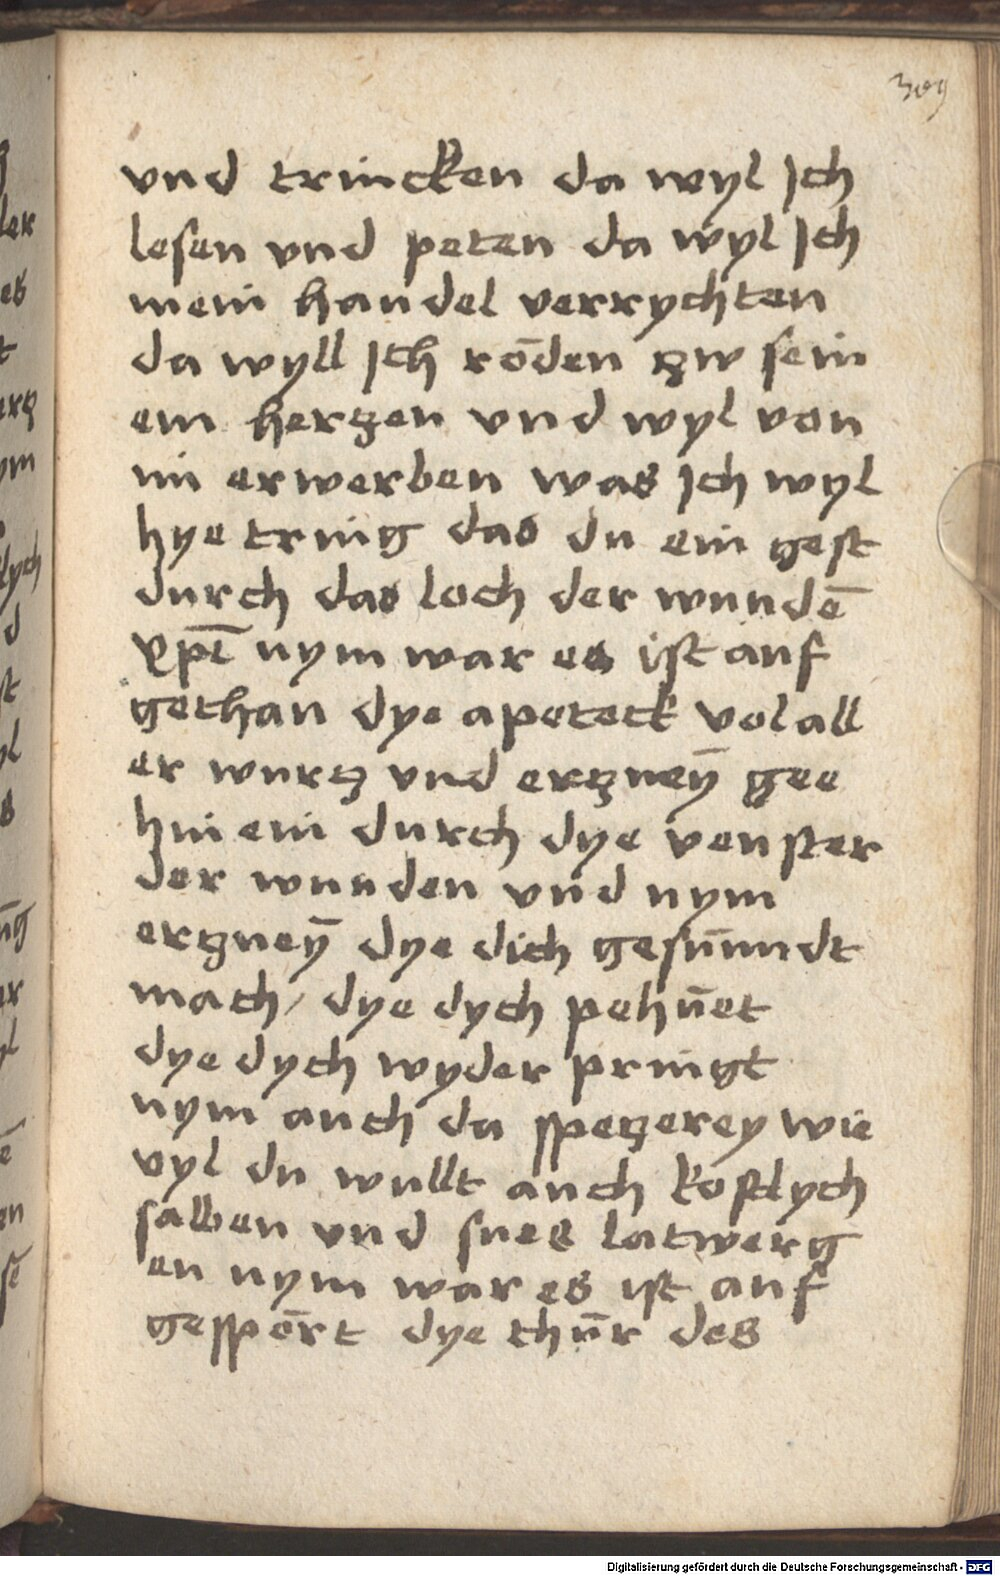 309
vnd trincken da wyl Jch
lesen vnd peten da wyl Jch
mein handel verrychten
da wyll Jch rōden zw sein
em hertzen vnd wyl von
im erwerben was Jch wyl
hye tring das du ein gest
durch das loch der wundē
xp̄i nym war es ist auf
gethan dye apoteck vol all
er wurtz vnd ertzneÿ gee
hin ein durch dye venster
der wunden vnd nym
ertzneÿ dye dich gesūnndt
mach / dye dych pehūet
dye dych wyder pringt
nym auch da spetzerey wie
vyl du wullt auch kostlych
salben vnd sues latwerg
en nym war es ist auf
gespōrt dye thūr des
Digitalisierung gefördert durch die Deutsche Forschungsgemeinschaft - DFG